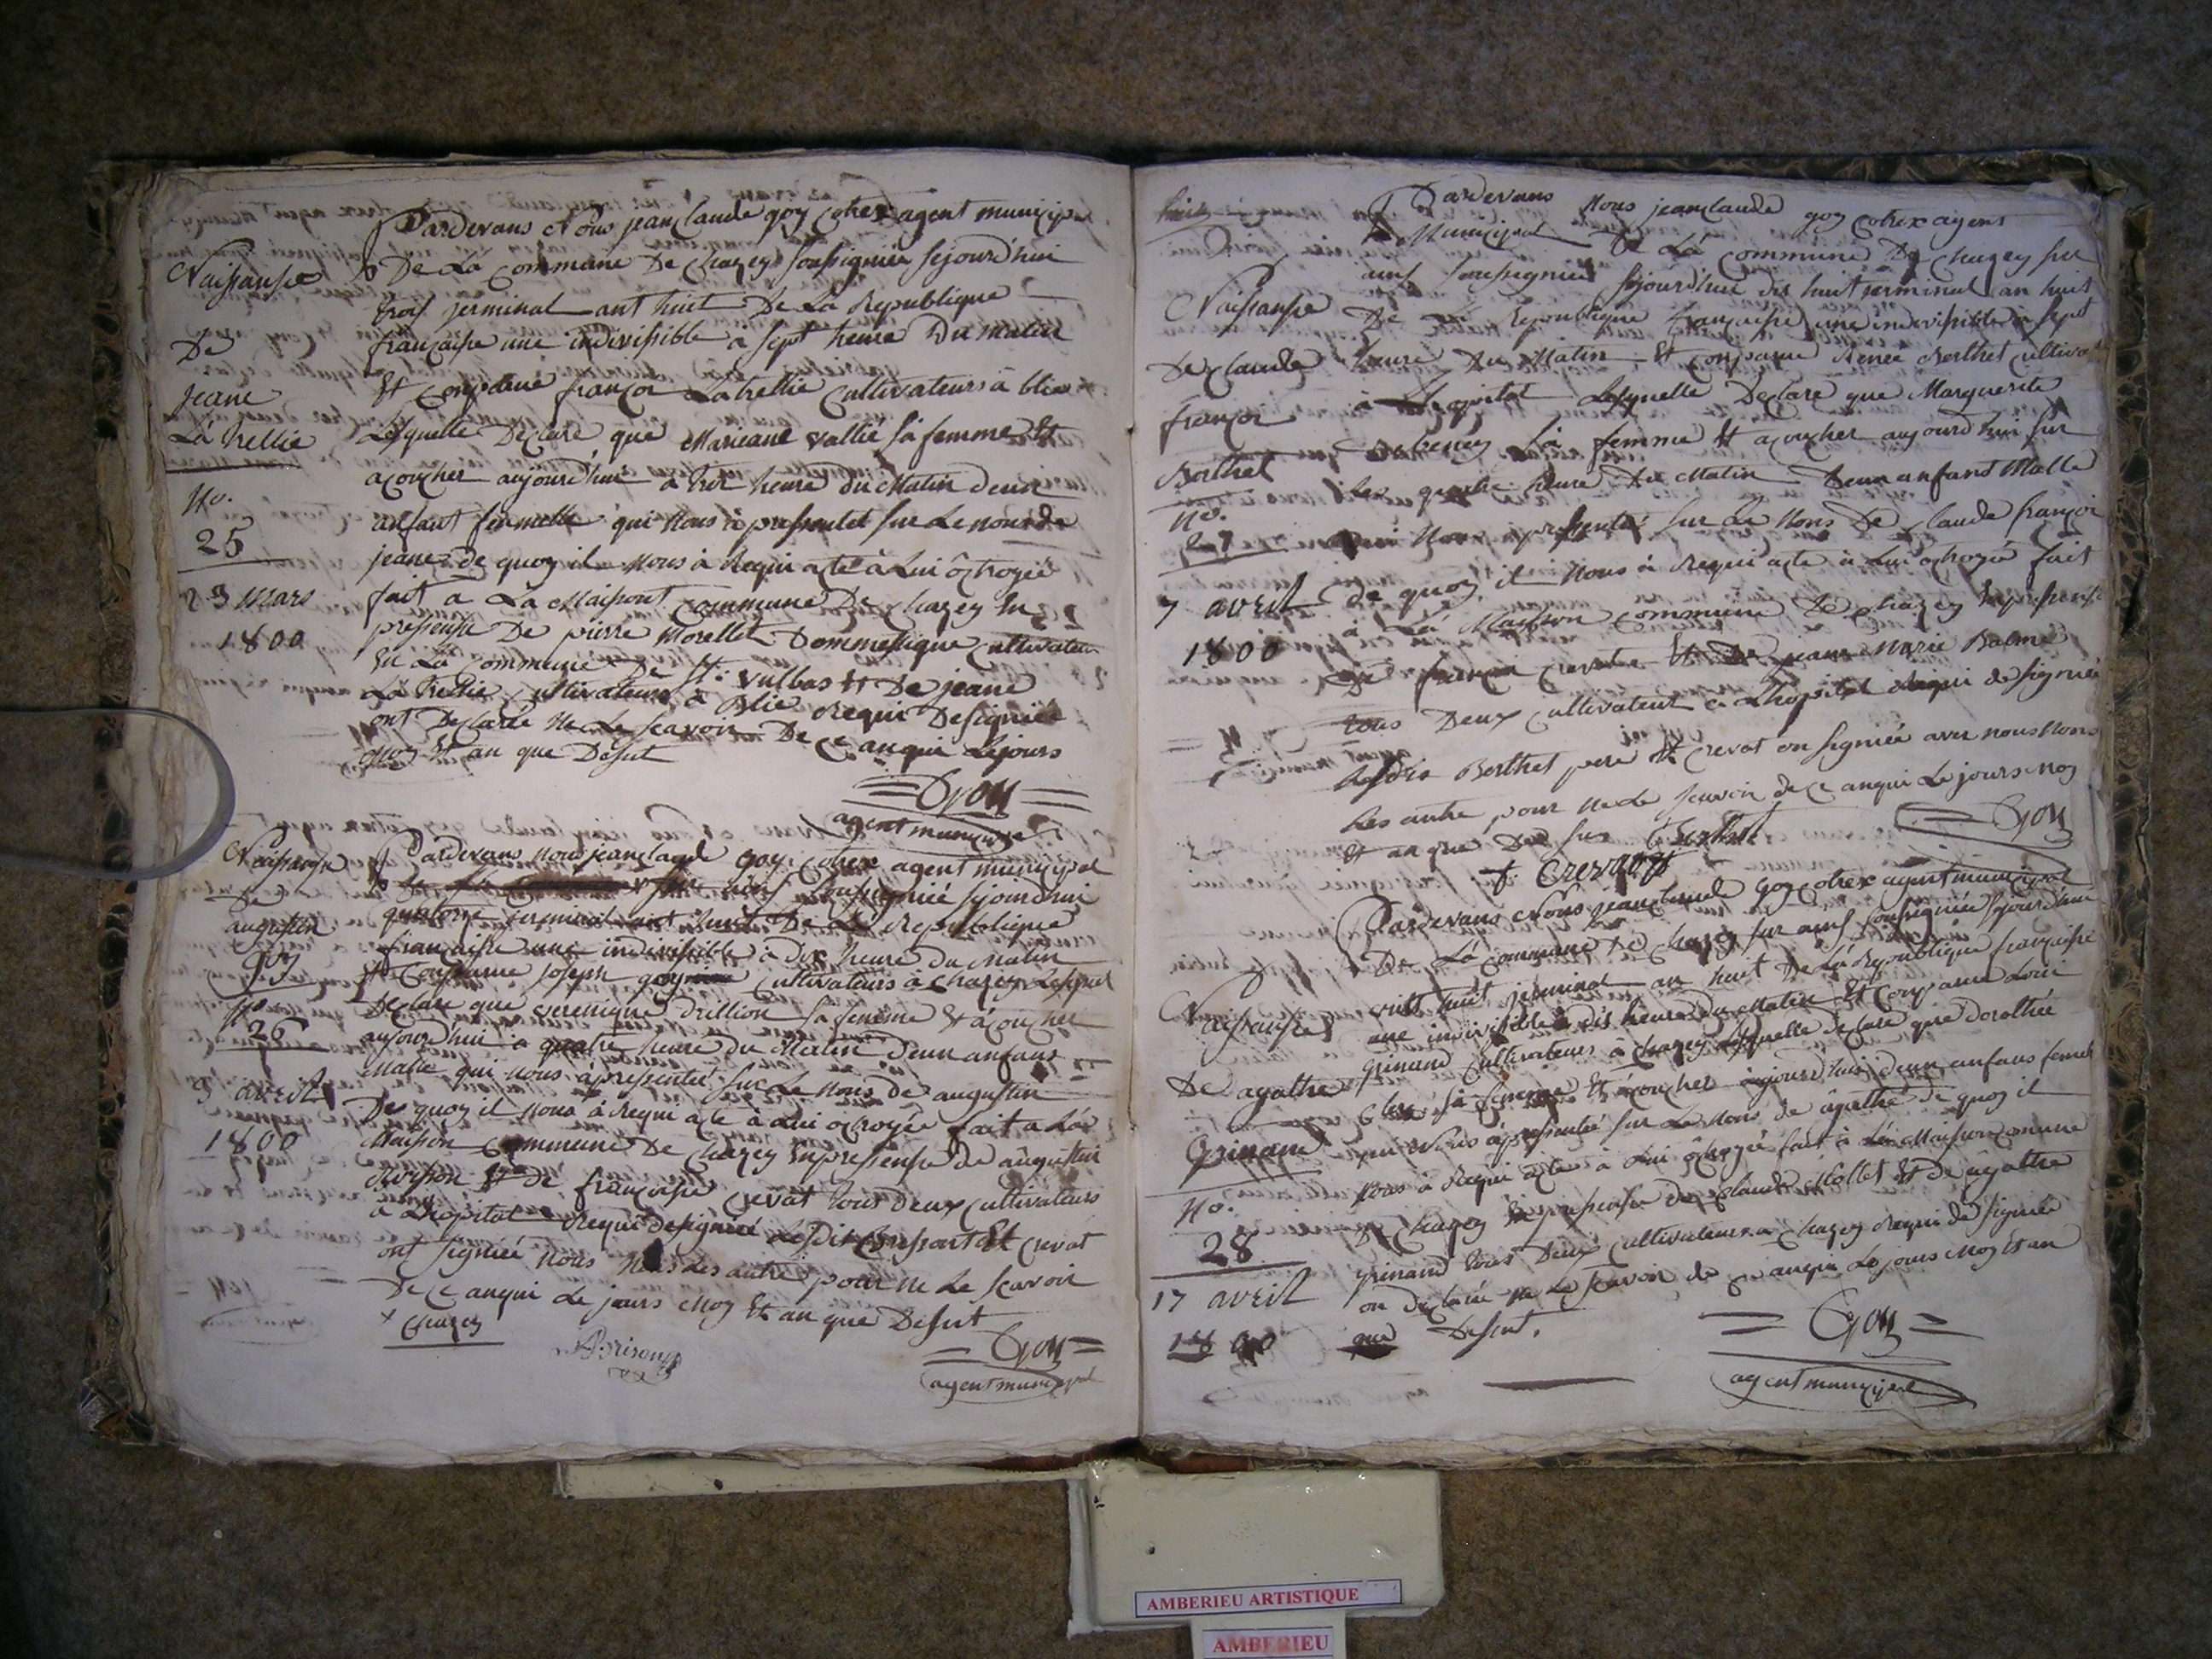 Pardevans Nous jean Claude goy cohex agent municipal
De La Commune De chazey soussigniee sejourd'hui
trois jerminal ant huit De La Republique
francaisse une indivissible à sept heure Du matin
Et Conparue françoi La trellie Cultivateurs à blie
Lesquelle Declare que Mareane vallié sa femme Et
acoucher aujourd'hui à heure du Matin deun
anfant fermelle qui Nous à pressentet sur Le nons de
jeane de quoy il Nous à Requi acte à Lui octroyée
fait a La Maisont Commune De chazey En
pressensse De pierre Morellet Dommestique Cultivateur
En La Commune De St. vulbas Et De jeane
La trellie Cultivateurs à Blie Requi De signiée
ont Declarée Ne Le scavoir De Ce anqui Le jours
moy Et an que Desut
Goy
agent municipal
Naissansse
De
jeane
La trellie
No.
25
23 Mars
1800
Pardevans Nous jean Claude goy Cohex agent municipal
De La sur ains soussigniée sejourd'hui
quatorze jerminal ant huit De La Republique
francaisse une indivissible à dix heure du Matin
Et Conparue joseph goy Cultivateurs à chazey Lesquel
Declare que verenique drillion sa femme Et acoucher
aujourd'hui a quatre heure du Matin deun anfans
Malle qui nous à pressentée sur Le Nons de augustin
De quoy il Nous à Requi acte à Lui octroyée fait a La
Maison Commune De Chazey En pressensse de augustin
Et de françoisse Crevat tous deux Cultivateurs
à Lhopital Requi de signiée Lesdit Et Crevat
ont signiée Nous Les autre pour Ne Le scavoir
De Ce anqui Le jours Moy Et an que Desut
x Chazey
Brison
Goy
agent municipal
Naissansse
De
augustin
goy
No.
26
avril
1800
Pardevans Nous jean Claude goy cohex agens
Municipal De La Commune De chazey sur
ains soussigniée sejourd'hui dix huit jerminal an huit
De La Republique francaisse une indivissible à sept
heure Du Matin Et Conparue Renee Berthet Cultivat
à Lhopital Lesquelle Declare que Marguerite
sa femme Et acoucher aujourd'hui sur
les quatre heure Du Matin Deun anfant Malle
Nous à pressentée sur Le Nons De Claude françoi
de quoy il Nous à Requi acte à Lui octroyée fait
à La Maisson Commune De chazey En pressensse
De françoi Crevat Et De jean Marie Balme
tous Deux Cultivateurs à Lhopital Requi de signiée
Lesdis Berthet pere Et Crevat on signiée avec nous Nons
Les autre pour Ne Le scavoir de Ce anqui Le jours Moy
Et an que De sus Berthet
f. Crevat
Goy
Naissansse
De Claude
françoi
Berthet
No.
27
7 avril
1800
Pardevans Nous jean Claude Goy cohex agent municipal
De La Commune De chazey sur ains soussigniée sejourd'hui
vint huit jerminal an huit De La Republique francaisse
une indivissible à dis heure Du Matin Et Conparue Loui
grinand Cultivateurs à chazey Lesquelle declare que dorothée
sa femme Et acoucher aujourd'hui deun anfans femell
qui Nous à pressentée sur Le Nons de agathe de quoy il
Nous à Requi acte à Lui octroyée fait à La Maison Comune
De Chazey En pressensse De Claude Mollet Et de agathe
grinand tous Deux Cultivateurs à Chazey Requi de signiée
on declarée Ne Le scavoir de Ce anqui Le jours Moy Et an
que Desut.
Goy
agent municipal
Naissansse
De agathe
Grinand
No.
28
17 avril
1800
AMBERIEU ARTISTIQUE
AMBERIEU